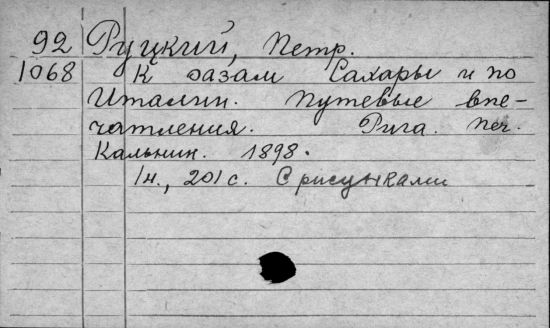 92 Руцкий, Петр.
1068 К оазам Сахары и по
Италии. Путевые впе-
чатления. Рига. печ.
Кальнин. 1898.
1н., 201 с. С рисунками